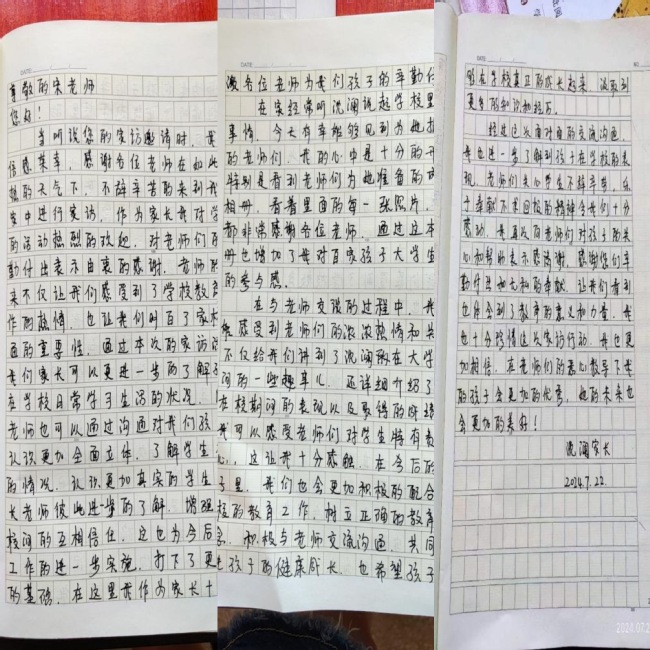 DATE:
尊敬的宋老师
您好！
当听说您的家访邀请时，我
倍感荣幸，感谢各位老师在如此
热的天气下，不辞辛苦的来到我
家中进行家访，作为家长我对学
的活动热烈的欢迎，对老师们的
勤付出表示由衷的感谢，老师的
来不仅让我们感受到了学校教育
作的热情，也让我们明白了家校
通的重要性，通过本次的家访活
我们家长可以更进一步的了解孩
在学校日常学习生活的状况，
老师也可以通过沟通对我们孩
认识更加全面立体，了解学生
的情况，认识更加真实的学生
长老师彼此进一步的了解，增强
校间的互相信任，这也为今后
工作的进一步实施，打下了更
的基础，在这里我作为家长十
DATE:
激各位老师为我们孩子的辛勤付
在家经常听沈澜说起学校里
事情，今天有幸能够见到为她指
的老师们，我的心中是十分的开
特别是看到老师们为她准备的成
相册，看着里面的每一张照片，
都非常感谢各位老师，通过这本
册也增加了我对自家孩子大学生
的参与感。
在与老师交谈的过程中，我
感受到老师们的浓浓热情和关
不仅给我们讲到了沈澜在大学
间的一些趣事儿，还详细介绍了
在校期间的表现以及取得的成绩
我可以感受老师们对学生特有的
心，这让我十分感触，在今后的
子里，我们也会更加积极的配合
校的教育工作，树立正确的教育
念，积极与老师交流沟通，共同
孩子的健康成长，也希望孩子
能在学校真正的成长起来，汲取到
更多的知识和经历。
经过这次面对面的交流沟通，
我也进一步了解到孩子在学校的表
现，老师们关心学生不辞辛苦，乐
于奉献不求回报的精神令我们十分
感动，我再次向老师们对孩子的关
心和帮助表示感谢，感谢您们辛
勤付出和无私的奉献，让我们看到
也体会到了教育的意义和力量，我
也十分珍惜这次家访行动，我也更
加相信，在老师们的悉心教导下我
的孩子会更加的优秀，她的未来也
会更加的美好！
沈澜家长
2024.7.22.
2024.07.2